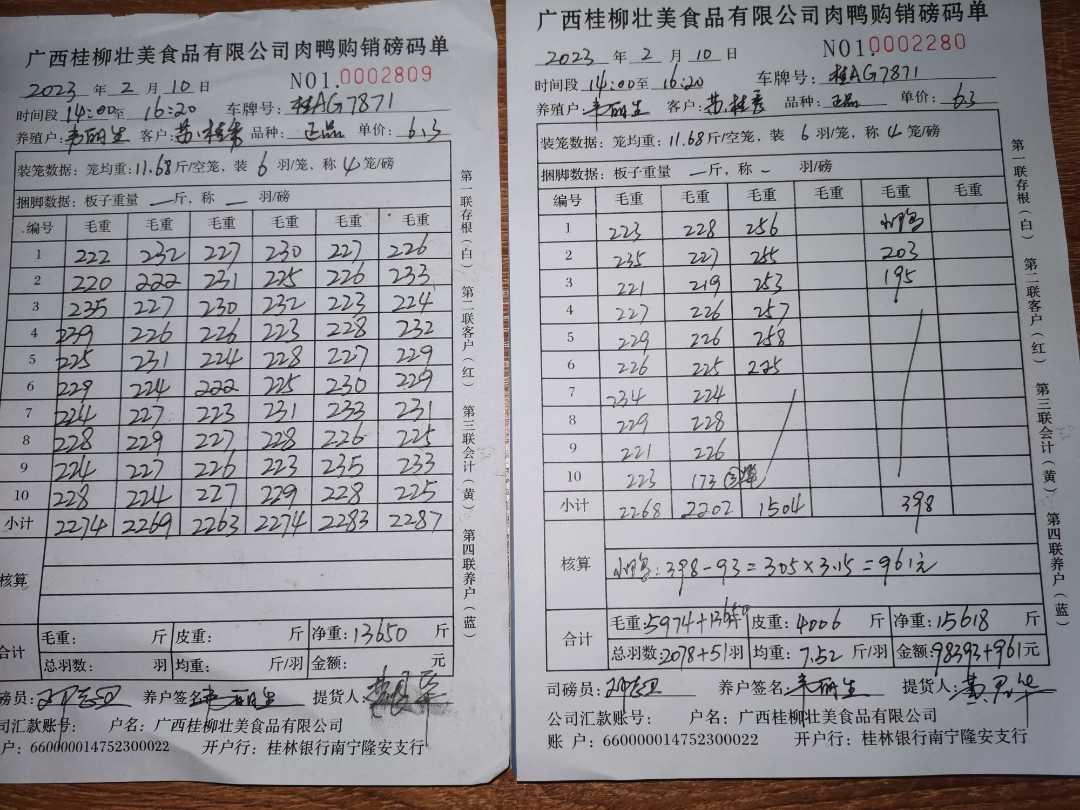 广西桂柳壮美食品有限公司肉鸭购销磅码单
2023 年 2 月 10 日 NO1.0002809
时间段 14:00至 16:20 车牌号: 桂AG7871
养殖户: 韦丽生 客户: 苏桂秀 品种: 正品 单价: 6.3
装笼数据: 笼均重: 11.68斤/空笼, 装 6 羽/笼, 称 4 笼/磅
捆脚数据: 板子重量 一斤, 称 一 羽/磅
编号 毛重 毛重 毛重 毛重 毛重 毛重
1 222 232 227 230 227 226
2 220 222 231 225 226 233
3 235 227 230 232 223 224
4 239 226 226 223 228 232
5 225 231 224 228 227 229
6 229 224 222 225 230 229
7 224 227 223 231 233 231
8 228 229 227 228 226 225
9 224 227 226 223 235 233
10 228 224 227 229 228 225
小计 2274 2269 2263 2274 2283 2287
核算
合计 毛重: 斤 皮重: 斤 净重: 13650 斤
总羽数: 羽 均重: 斤/羽 金额: 元
磅员: 养户签名: 韦丽生 提货人:
公司汇款账号: 户名: 广西桂柳壮美食品有限公司
户: 660000014752300022 开户行: 桂林银行南宁隆安支行
第一联存根(白) 第二联客户(红) 第三联会计(黄) 第四联养户(蓝)
广西桂柳壮美食品有限公司肉鸭购销磅码单
2023 年 2 月 10 日 NO1.0002280
时间段 14:00至 16:20 车牌号: 桂AG7871
养殖户: 韦丽生 客户: 苏桂秀 品种: 正品 单价: 6.3
装笼数据: 笼均重: 11.68斤/空笼, 装 6 羽/笼, 称 4 笼/磅
捆脚数据: 板子重量 一斤, 称 一 羽/磅
编号 毛重 毛重 毛重 毛重 毛重 毛重
1 223 228 256
2 235 227 255 203
3 221 219 253 195
4 227 226 257
5 229 226 258
6 226 225 225
7 234 224
8 229 228
9 221 226
10 223 173
小计 2268 2202 1504 398
核算 398-93=305×3.15=961元
合计 毛重: 5974+13650斤 皮重: 4006 斤 净重: 15618 斤
总羽数: 2078+51羽 均重: 7.52 斤/羽 金额: 98393+961元
司磅员: 养户签名: 韦丽生 提货人:
公司汇款账号: 户名: 广西桂柳壮美食品有限公司
账 户: 660000014752300022 开户行: 桂林银行南宁隆安支行
第一联存根(白) 第二联客户(红) 第三联会计(黄) 第四联养户(蓝)